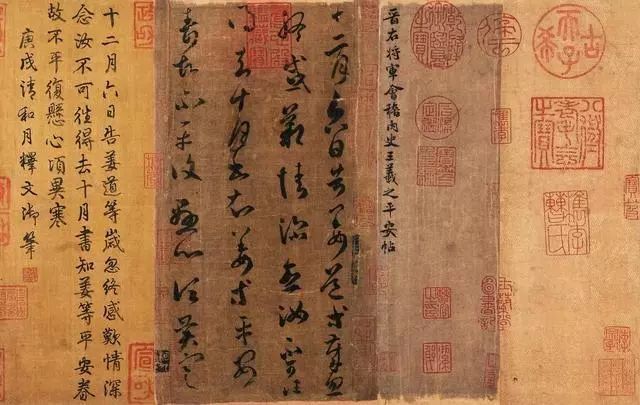 古希天子
八徵耄念之寶
晉右將軍會稽內史王羲之平安帖
十二月六日告姜道等歲忽
終感歎情深念汝不可徃
得去十月書知姜等平安
眷故不平復懸心頃異寒
十二月六日告姜道等歲忽終感歎情深
念汝不可徃得去十月書知姜等平安眷
故不平復懸心頃異寒
庚戌清和月釋文御筆